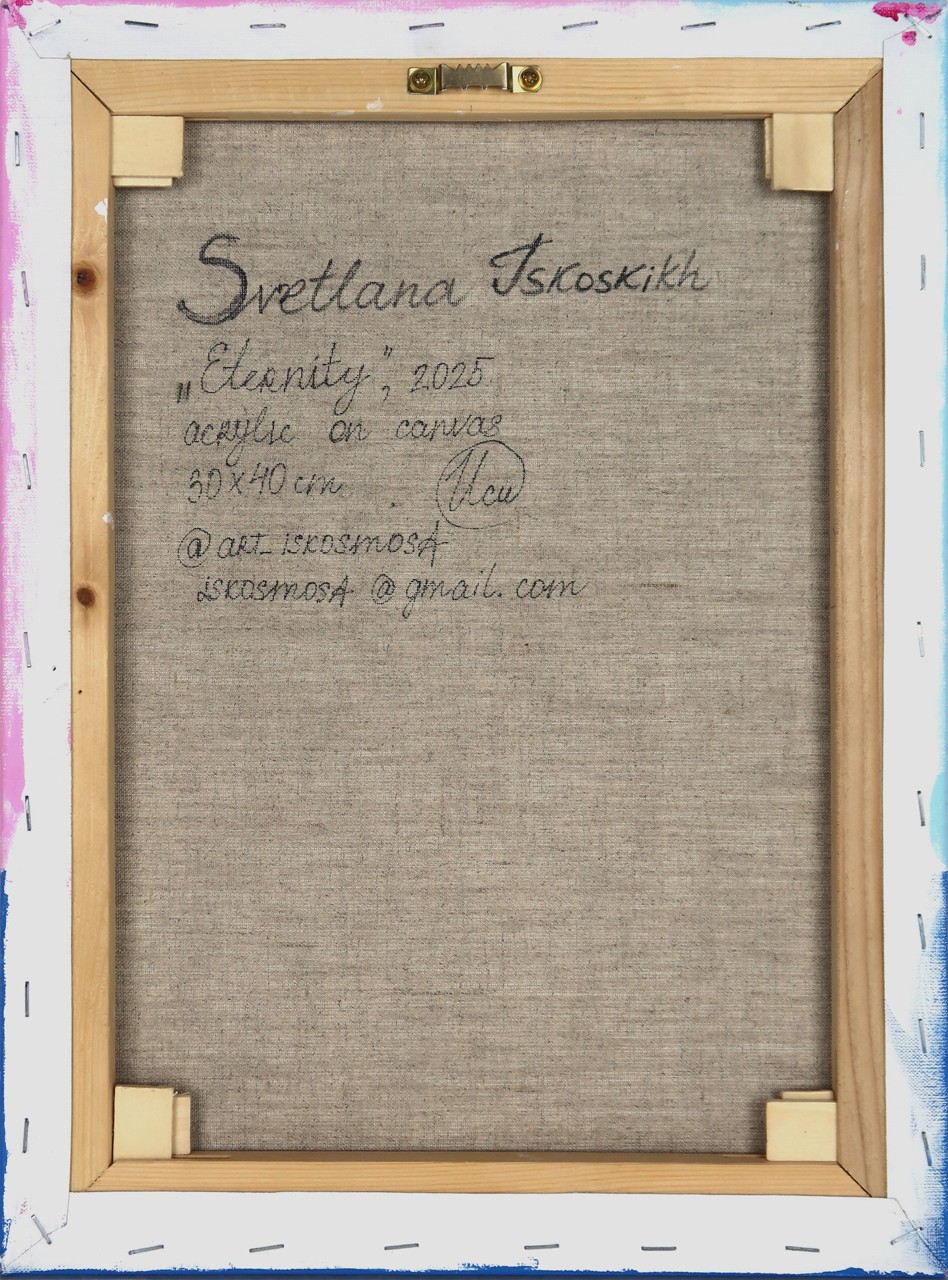 Svetlana Iskoskikh
„Eternity”, 2025
acrylic on canvas
30x40 cm
Иси
@art_iskosmosA
iskosmosA@gmail.com